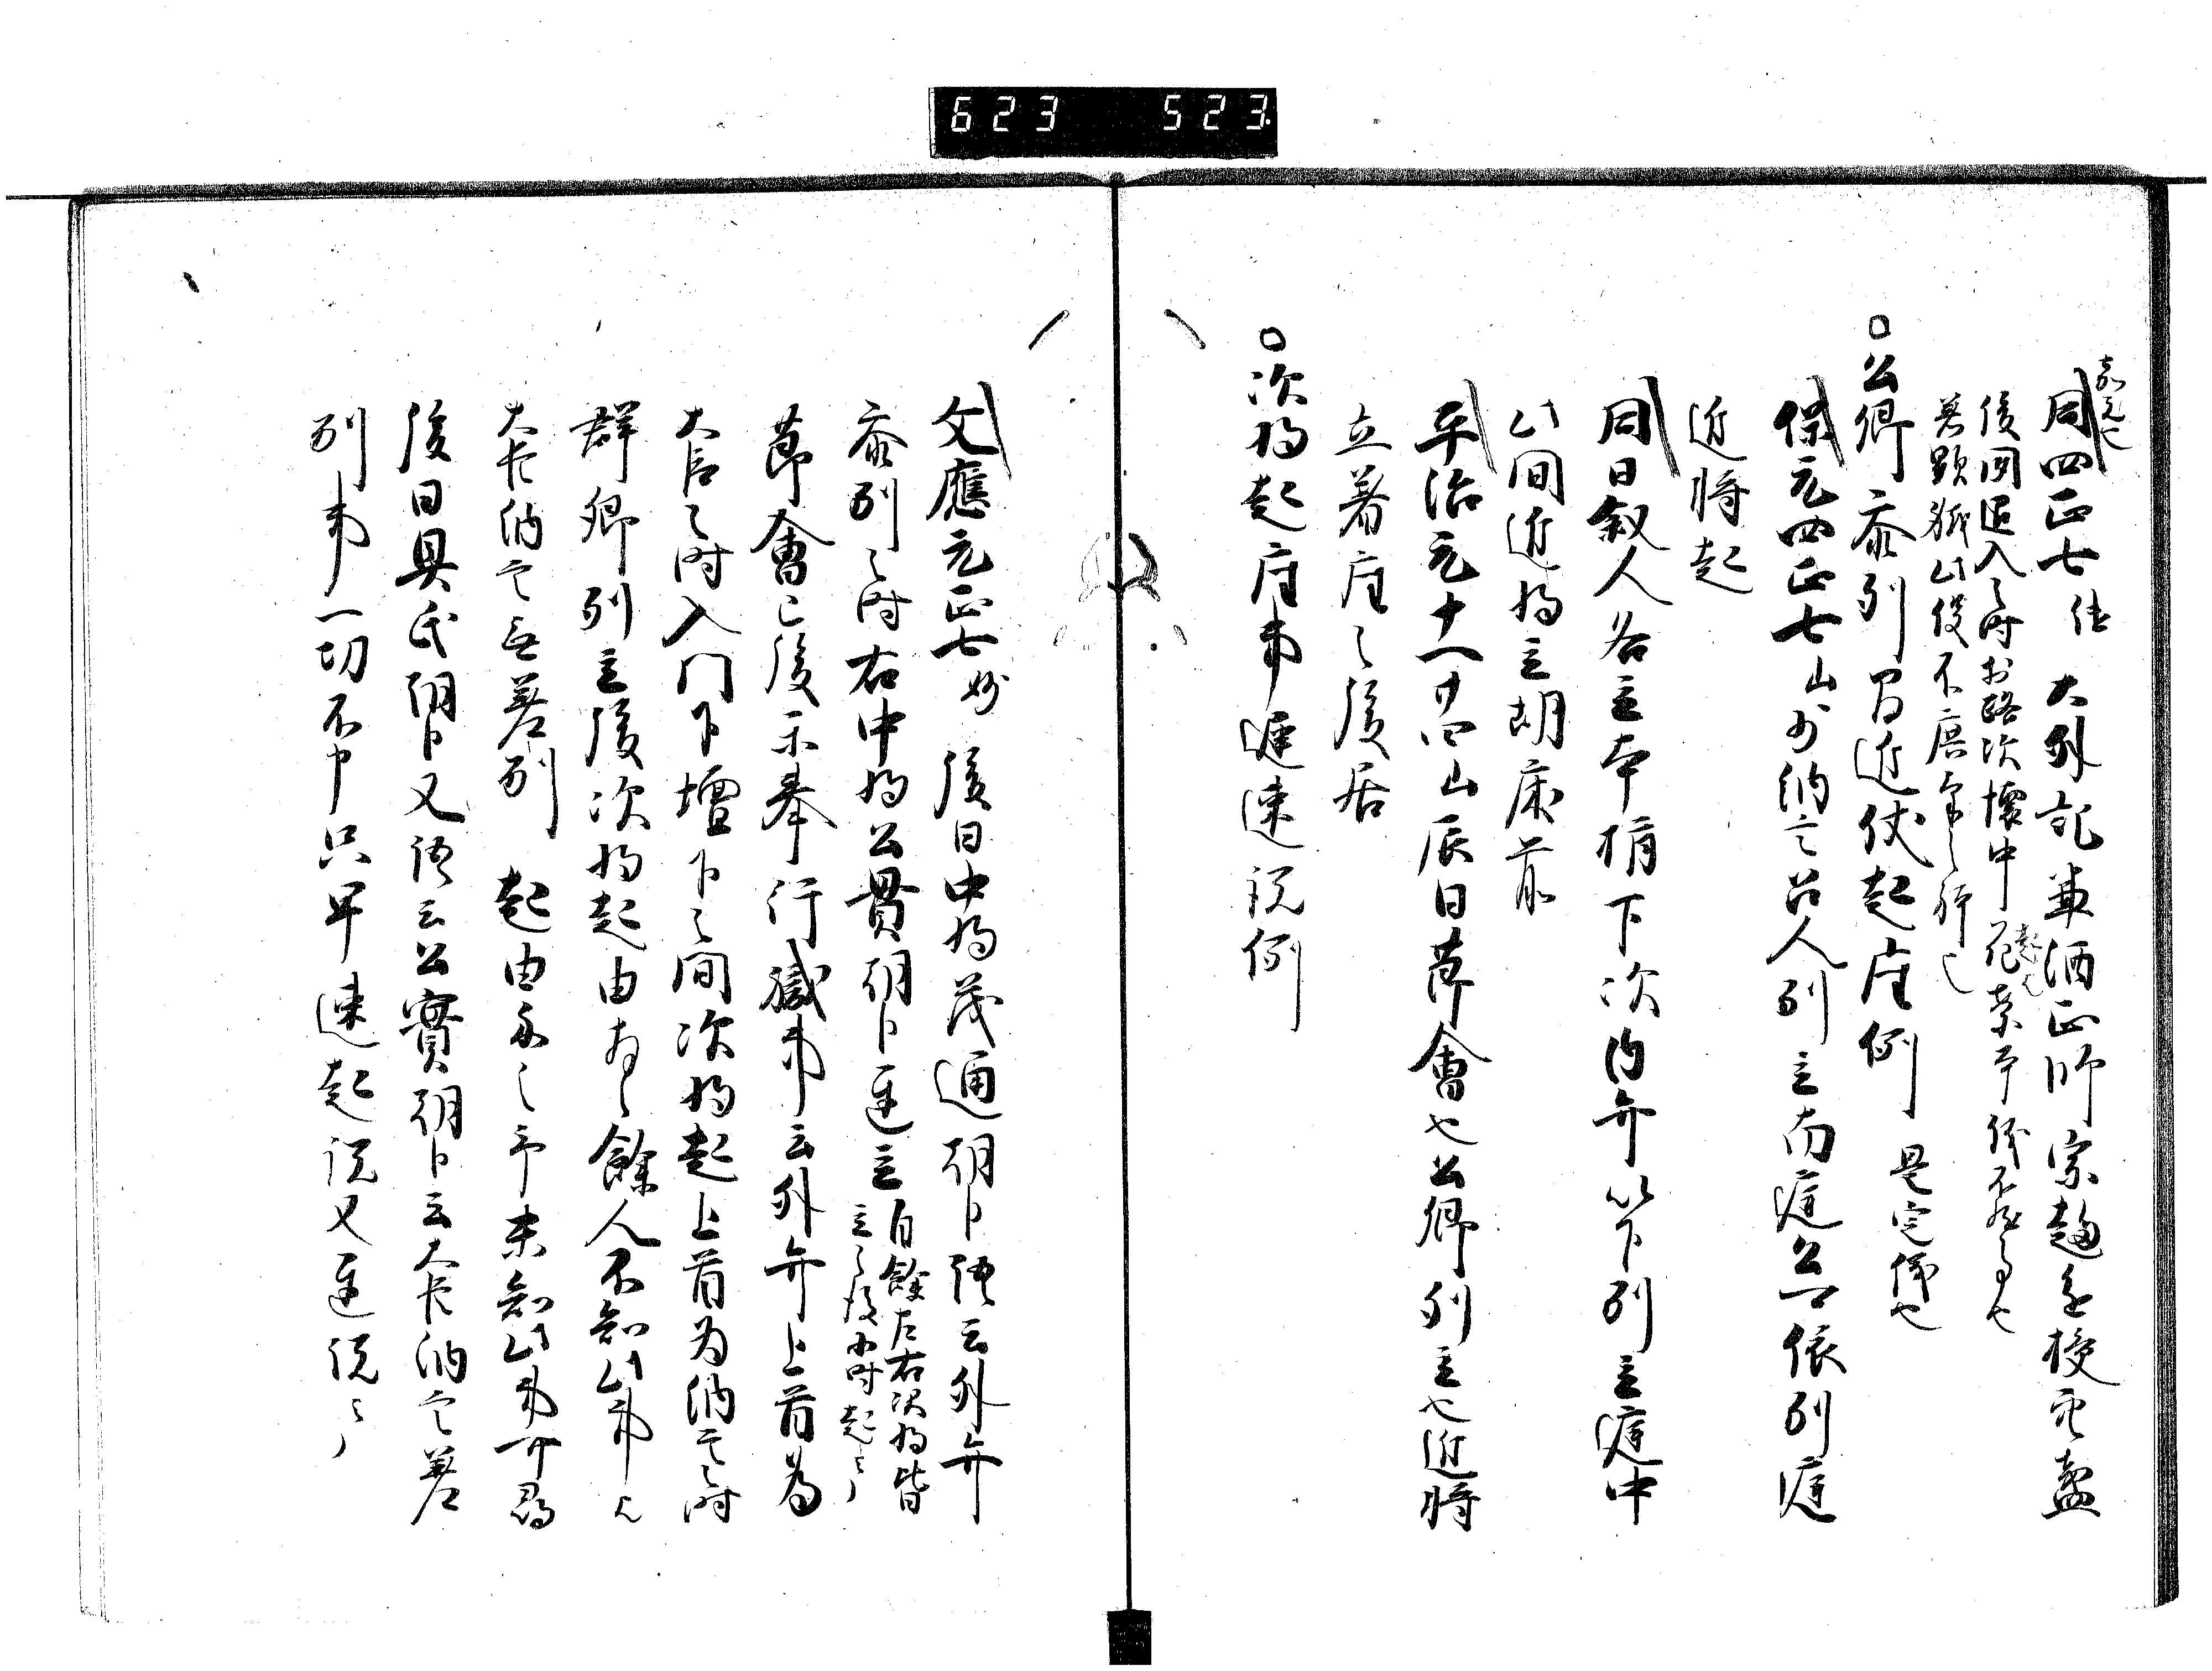 623 523
嘉元也
同四正七 大外記兼酒正師宗趨進授空盞
後聞退入之時於路次懐中
若顕職此役不
○公卿参列了近仗起座例 是定儀也
保元四正七山 少納言召人列立南庭公一依列庭
近将起
同日叙人各立本標下次内弁以下列立庭中
此間近将立胡床前
平治元十一廿四山 辰日節会也公卿列立也近将
立着座之後居
○次将起座事遅速説例
文応元正七妙 後日中将茂通朝臣語云外弁
参列之時右中将公貫朝臣速立 自余左右次将皆
立之後小時起云々
節会已後示奉行職事云外弁上首為
大臣之時入門下壇下之間次将起上首為納言之時
群卿列立後次将起由存之余人不知此事
大臣納言無差別 起由存之予未知此事可尋
後日具氏朝臣又語云公貫朝臣云大臣納言差
別事一切不聞只早速起説又遅説云々